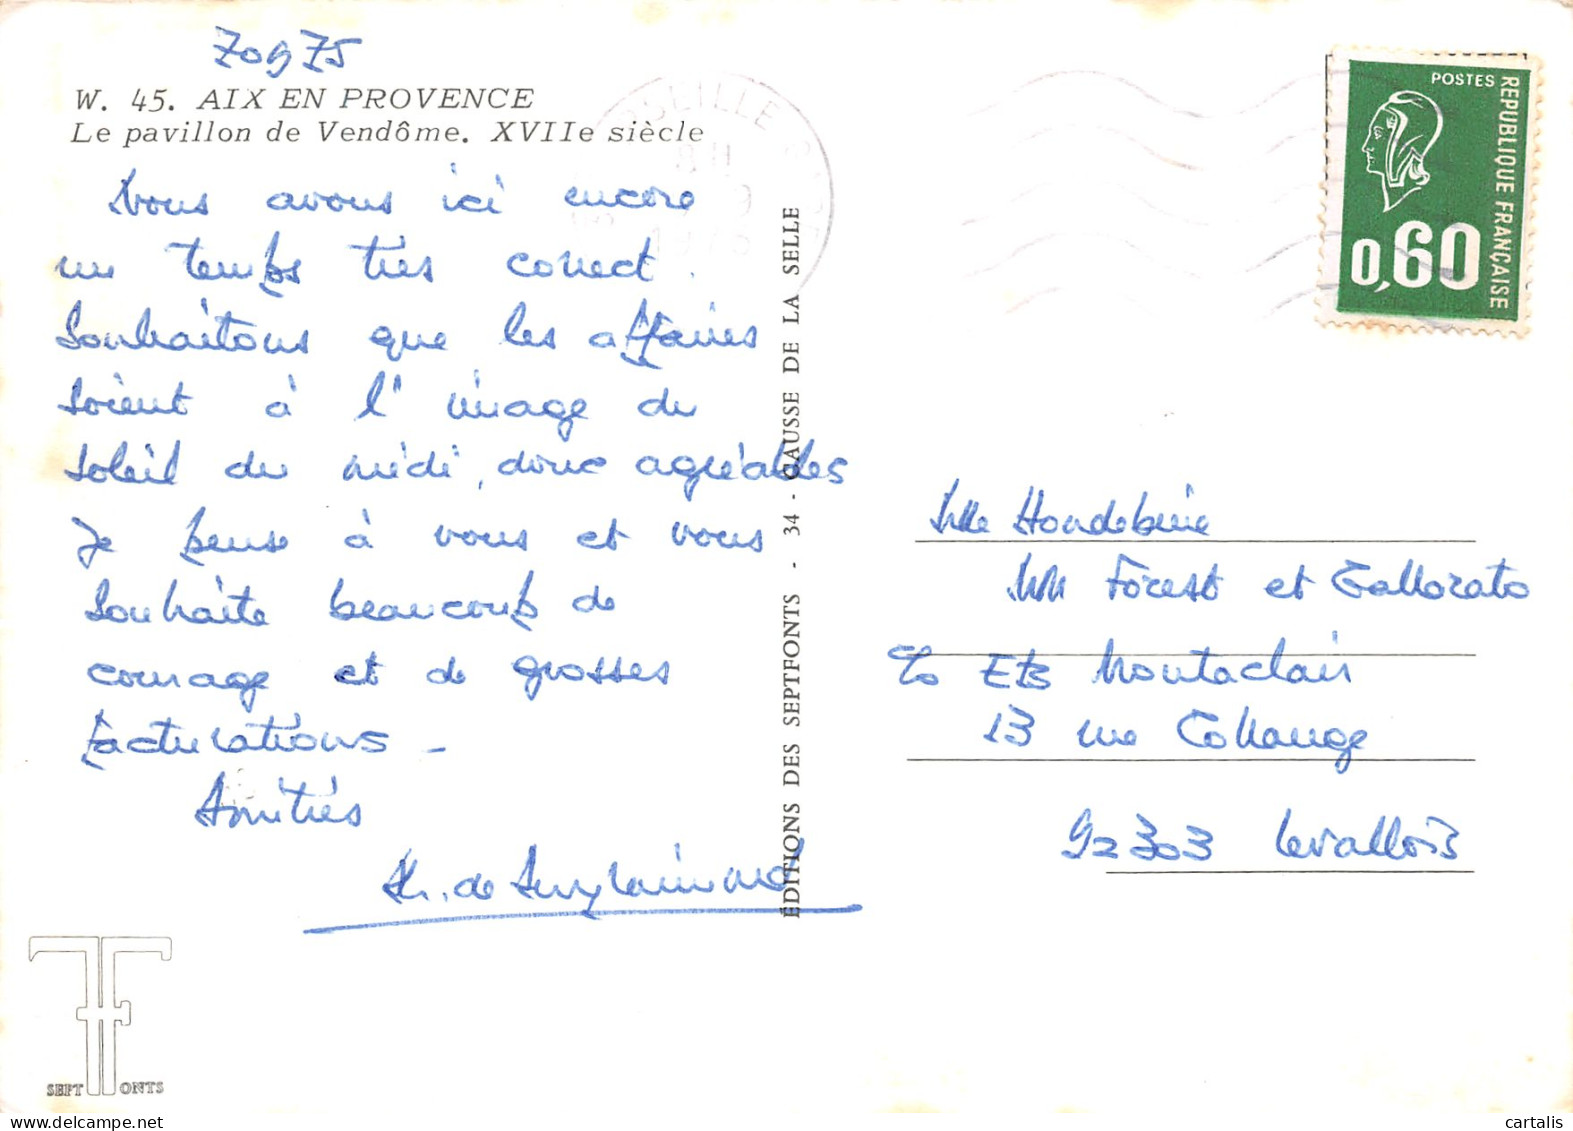 70975
W. 45. AIX EN PROVENCE
Le pavillon de Vendôme. XVIIe siècle
Nous avons ici encore
un temps très correct.
Souhaitons que les affaires
soient à l'image du
soleil du midi, donc agréables
Je pense à vous et vous
souhaite beaucoup de
courage et de grosses
facturations -
Amitiés
EDITIONS DES SEPTFONTS - 34 - GAUSSE DE LA SELLE
SEPT FONTS
POSTES
REPUBLIQUE FRANÇAISE
0,60
Mlle Houdebine
MM Forest et Gallorato
c/o Ets Montaclair
13 rue Collange
92303 Levallois
cartalis